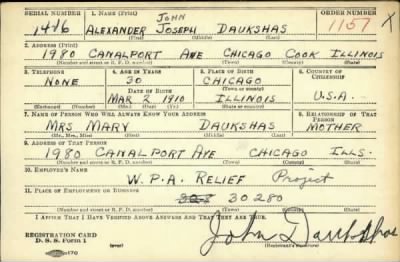 SERIAL NUMBER 1. NAME (Print) ORDER NUMBER
JOHN
1476 ALEXANDER JOSEPH DAUKSHAS 1157 X
(First) (Middle) (Last)
2. ADDRESS (Print)
1980 CANALPORT AVE CHICAGO COOK ILLINOIS
(Number and street or R. F. D. number) (Town) (County) (State)
3. TELEPHONE 4. AGE IN YEARS 5. PLACE OF BIRTH 6. COUNTRY OF CITIZENSHIP
NONE 30 CHICAGO
DATE OF BIRTH (Town or county)
MAR 2 1910 ILLINOIS U.S.A.
(Exchange) (Number) (Mo.) (Day) (Yr.) (State or country)
7. NAME OF PERSON WHO WILL ALWAYS KNOW YOUR ADDRESS 8. RELATIONSHIP OF THAT PERSON
MRS MARY DAUKSHAS MOTHER
(Mr., Mrs., Miss) (First) (Middle) (Last)
9. ADDRESS OF THAT PERSON
1980 CANALPORT AVE CHICAGO ILLS.
(Number and street or R. F. D. number) (Town) (County) (State)
10. EMPLOYER'S NAME
W.P.A. RELIEF Project
11. PLACE OF EMPLOYMENT OR BUSINESS
30280
(Number and street or R. F. D. number) (Town) (County) (State)
I AFFIRM THAT I HAVE VERIFIED ABOVE ANSWERS AND THAT THEY ARE TRUE.
REGISTRATION CARD
D. S. S. Form 1 John Daukshas
(Registrant's signature)